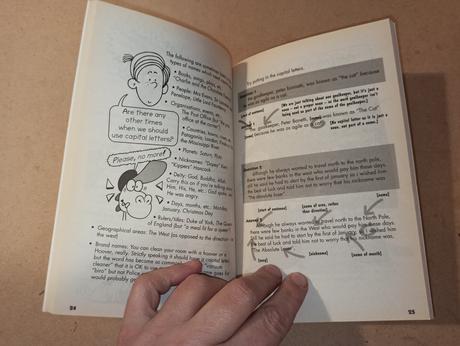 The following are some
types of names which need
• Books, songs, plays, etc.
"Charlie and the Chocolate
• People: Mrs Evans, Sir Lancelot
Penelope, Little Lord
• Organisations,
the Post Office
office at the corner")
• Countries, towns,
Patagonia, London,
the Mississippi River
• Planets: Saturn, Pluto
• Nicknames: "Dopey"
"Kippers" Hancock
• Deity: God, Buddha, Allah
Carry this on if you're talking about
Him, His, He, etc.: God spoke
He was angry.
• Days, months, etc.: Monday
January, Christmas Day
• Rulers/titles: Duke of York, The Queen
of England (But "a meal fit for a queen")
• Geographical areas: The West (as opposed to the direction
the west)
• Brand names: You can clean your room with a hoover or a
Hoover, really. Strictly speaking it should have a capital letter
but the word has become so common "vacuum
cleaner" that it is OK to use The same goes for
"biro" but not
would probably
Are there any
other times
when we should
use capital letters?
Please, no more!
24
Try putting in the capital letters.
the goalkeeper, peter bonnetti, was known as "the cat" because
he was as agile as a cat.
[start of sentence]
[We are just talking about one goalkeeper, but it's just a
noun - not a proper noun - as the word goalkeeper isn't
being used as part of the name of the goalkeeper.]
The goalkeeper, Peter Bonetti, was known as "The Cat"
because he was as agile as a cat.
[name]
[no capital letter as it is just a
noun, not part of a name.]
Question 2
although he always wanted to travel north to the north pole,
there were few banks in the west who would pay him those days.
still he said he had to start by the first of january so i wished him
the best of luck and told him not to worry that his nickname was
"the absolute loser".
[start of sentence]
[name of area, rather
than direction]
[name]
Answer 2
Although he always wanted to travel north to the North Pole,
there were few banks in the West who would pay him those days.
Still he said he had to start by the first of January, so I wished him
the best of luck and told him not to worry that his nickname was
"The Absolute Loser".
[nickname]
[name of month]
25